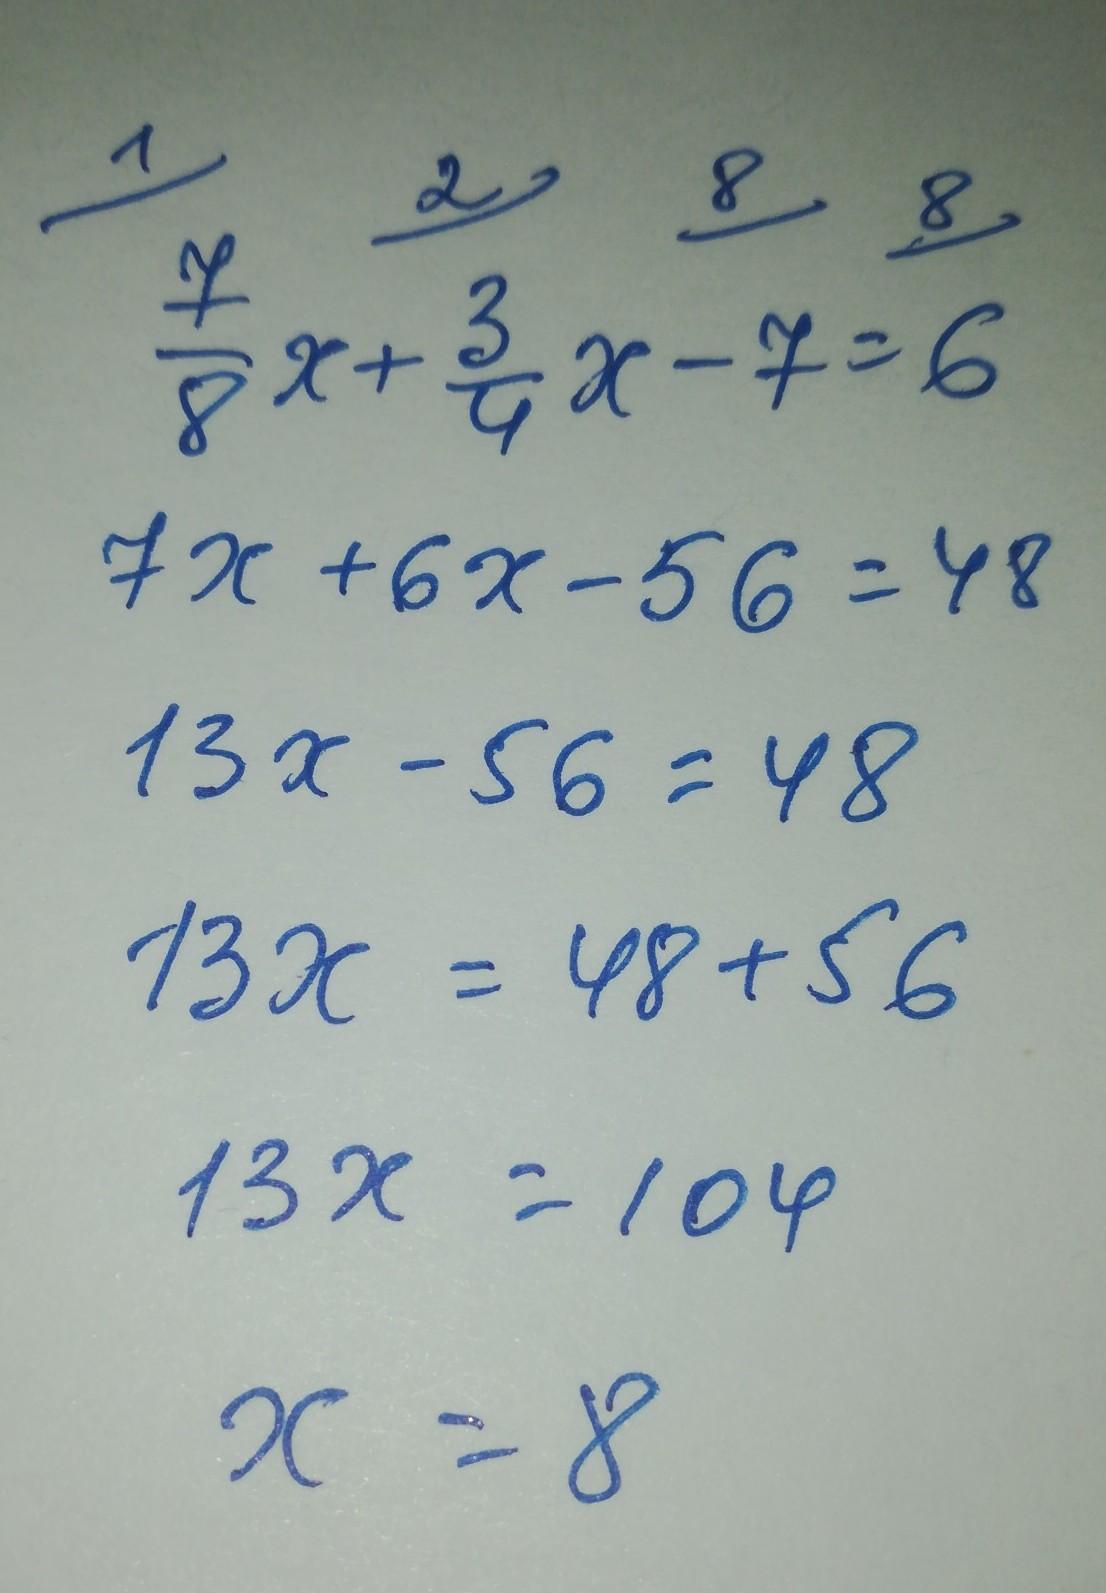 1 2 8 8
7/8 x + 3/4 x - 7 = 6
7x + 6x - 56 = 48
13x - 56 = 48
13x = 48 + 56
13x = 104
x = 8